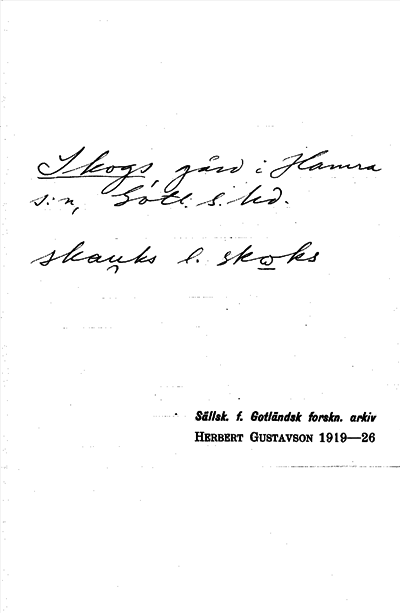 Skogs, gård i Hamra
s:n, Gotl. s. hd.
skau̯ks l. skωks
Sällsk. f. Gotländsk forskn. arkiv
HERBERT GUSTAVSON 1919—26